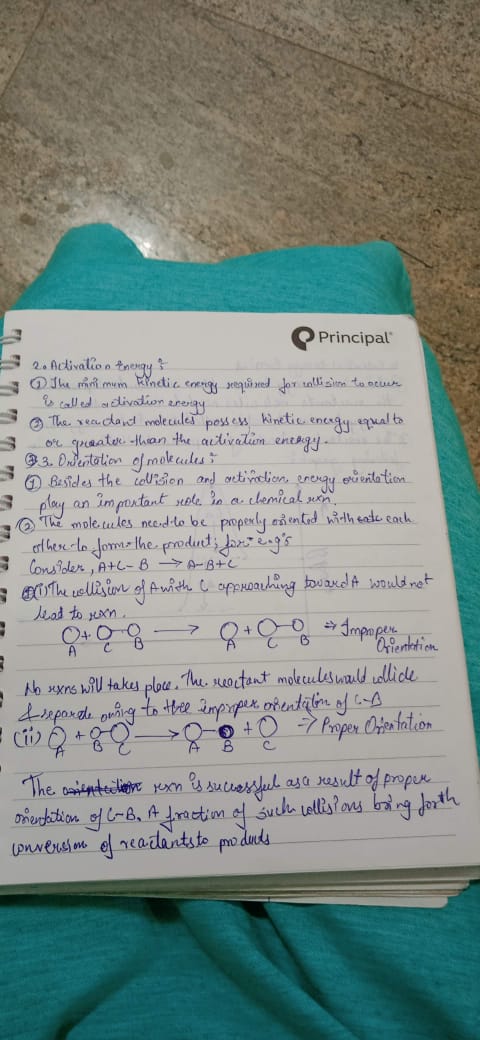 Principal
2. Activation Energy :
① The minimum kinetic energy required for collision to occur
is called activation energy
② The reactant molecules possess kinetic energy equal to
or greater than the activation energy.
3. Orientation of molecules :
① Besides the collision and activation energy orientation
play an important role in a chemical rxn.
② The molecules need to be properly oriented with each
other to form the product; for e.g's
Consider, A+C-B → A-B+C
(i) The collision of A with C approaching toward A would not
lead to rxn.
A + C B → A + C B ⇒ Improper
Orientation
No rxns will takes place. The reactant molecules would collide
& separate owing to improper orientation of C-B
(ii) A + B C → A B + C ⇒ Proper Orientation
The orientation rxn is successful as a result of proper
orientation of C-B. A fraction of such collisions bring forth
conversion of reactants to products